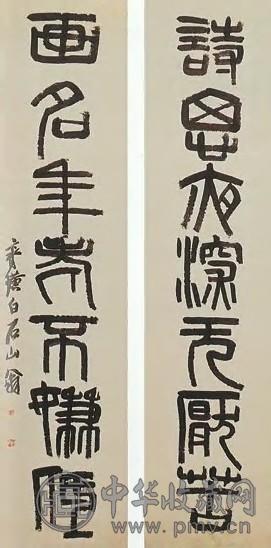 詩思夜深无厭苦
画名年老不嫌低
齊璜白石山翁
中华收藏网
www.pmv.cn